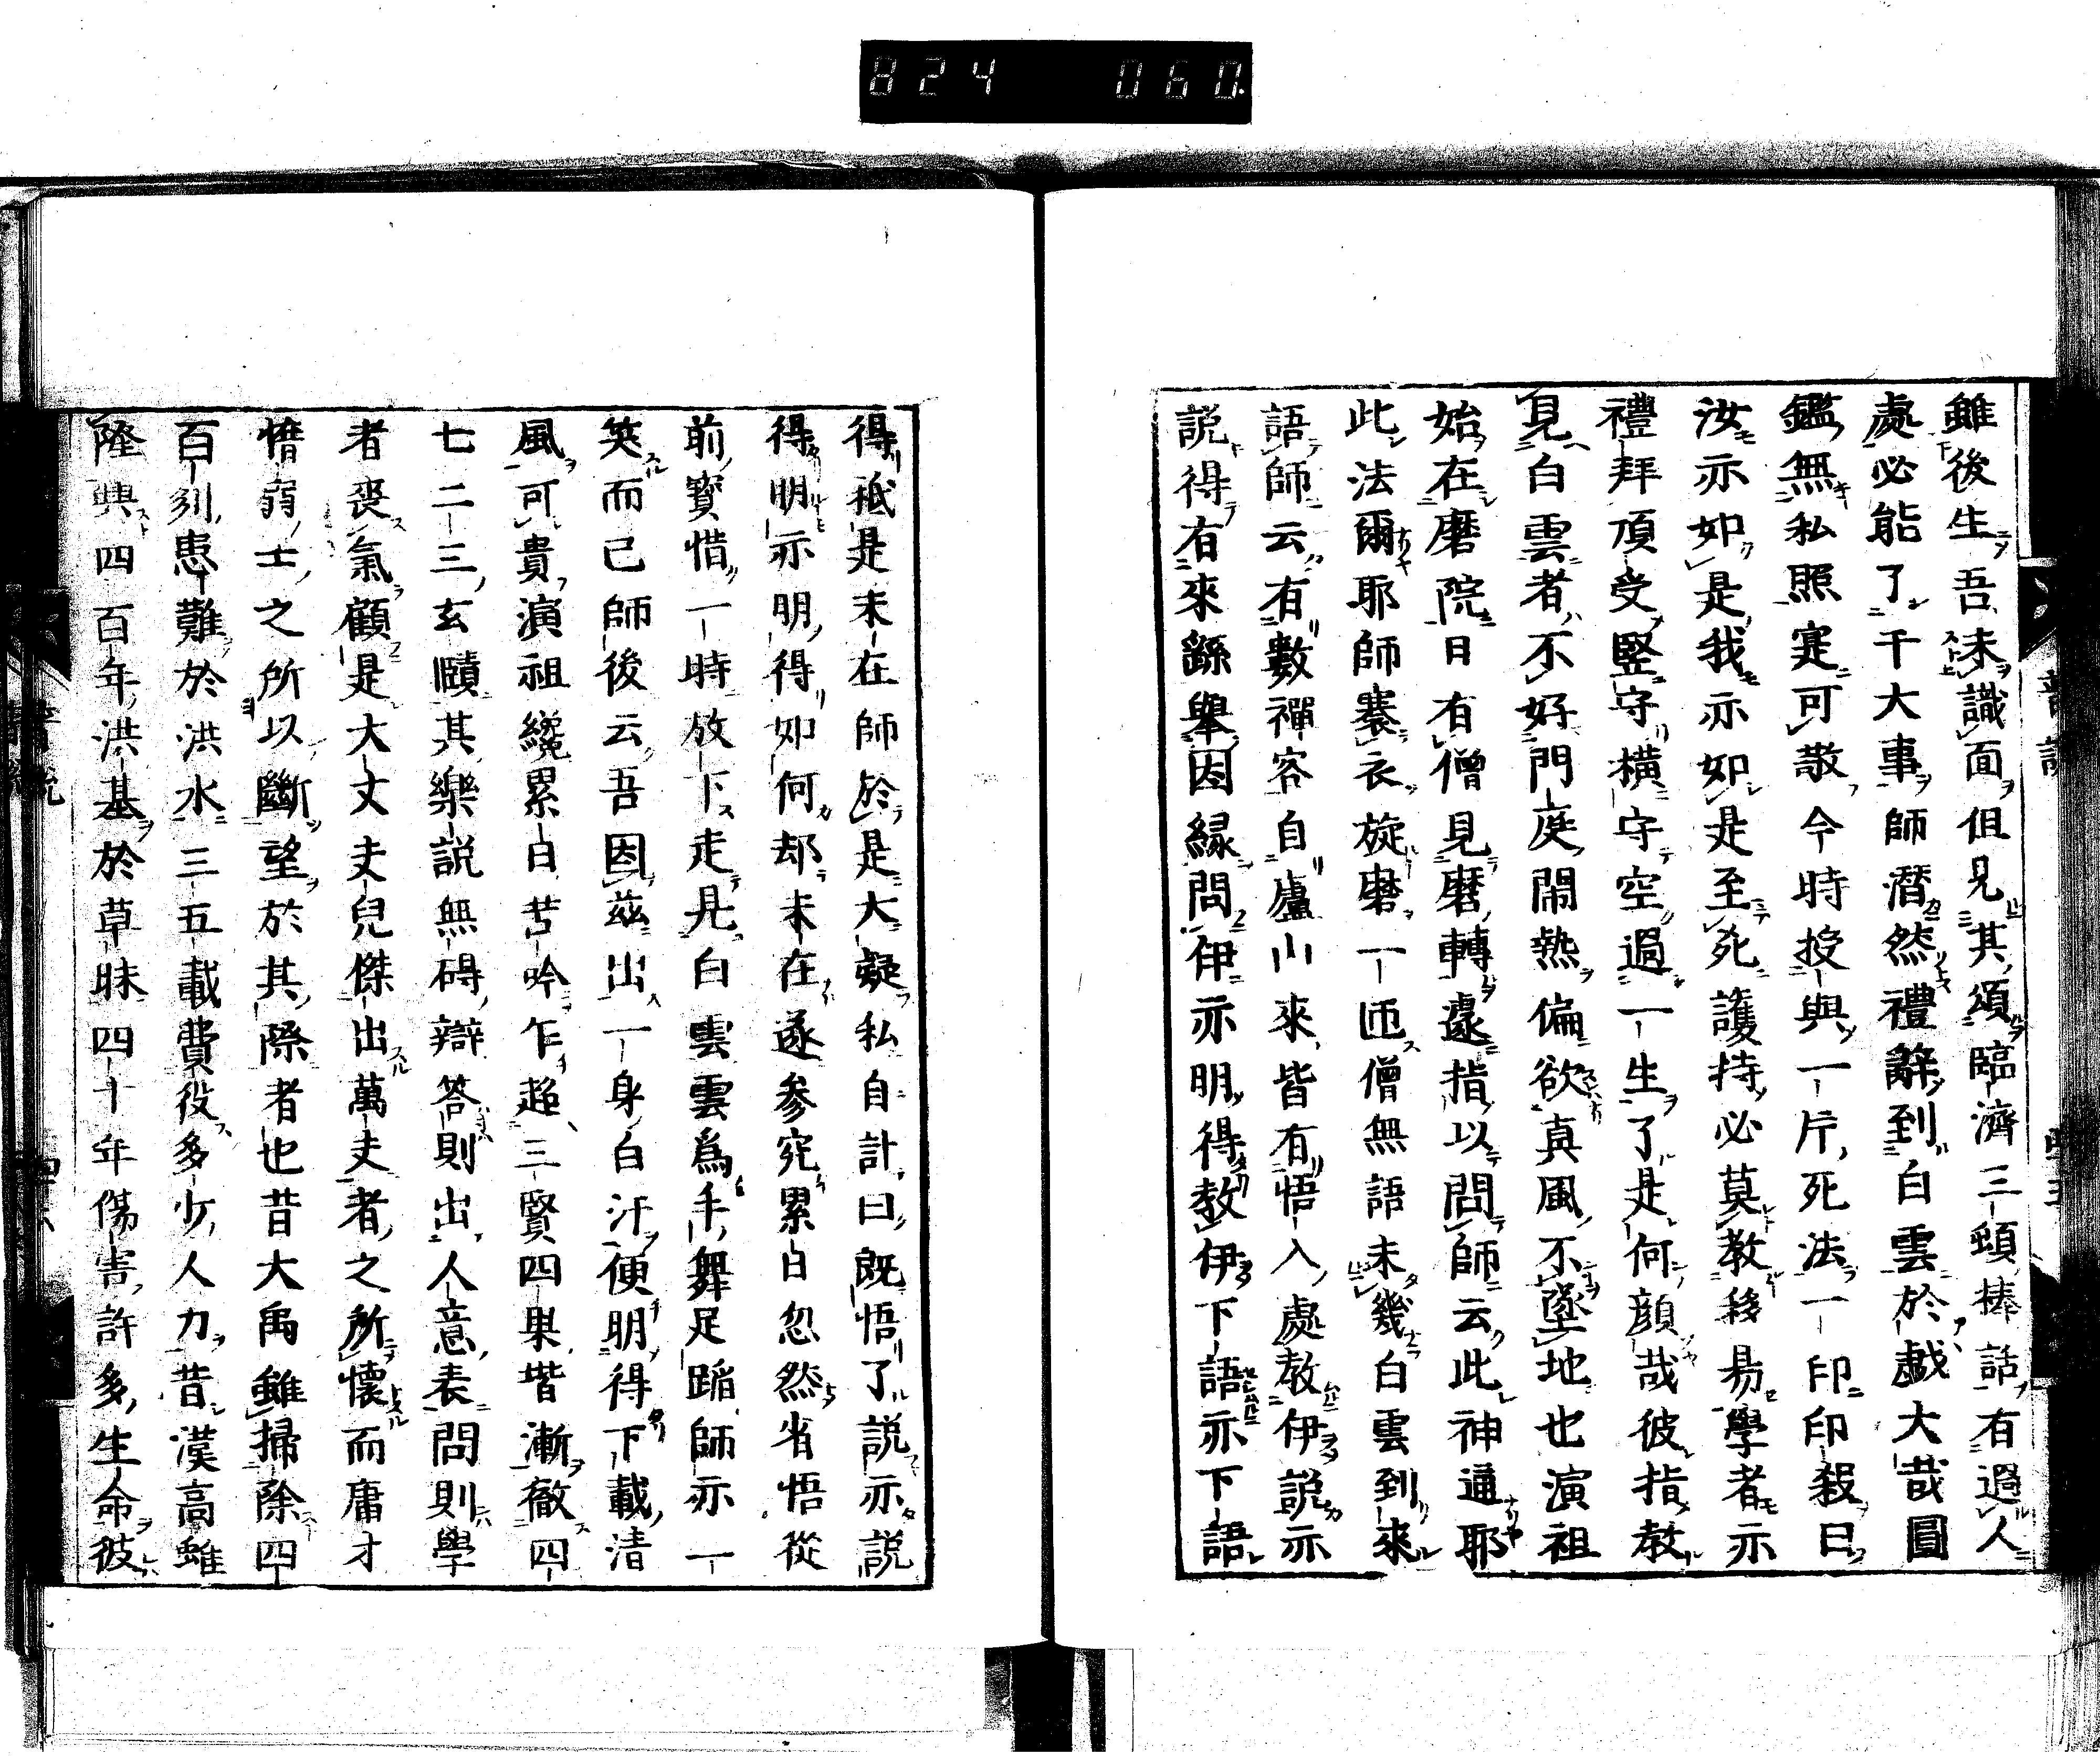 824 060
雖後生吾未識面但見其頌臨濟三頓棒話有過人
處必能了干大事師潛然禮辭到白雲於戲大哉圓
鑑無私照寔可敬今時授與一片死法一印印殺曰
汝亦如是我亦如是至死護持必莫教移易學者亦
禮拜頂受竪守橫守空過一生了是何顔哉彼指教
見白雲者不好門庭閙熱偏欲真風不墜地也演祖
始在磨院日有僧見磨轉遽指以問師云此神通耶
此法爾耶師褰衣旋磨一匝僧無語未幾白雲到來
語師云有數禪客自廬山來皆有悟入處教伊說亦
説得有來繇舉因緣問伊亦明得教伊下語亦下語
得祗是未在師於是大疑私自計曰既悟了說亦説
得明亦明得如何却未在遂参究累日忽然省悟從
前寳惜一時放下走見白雲雲爲手舞足蹈師亦一
笑而已師後云吾因茲出一身白汗便明得下載清
風可貴演祖纔累日苦吟乍超三賢四果堦漸徹四
七二三玄賾其樂説無碍辯答則出人意表問則學
者喪氣顧是大丈夫兒傑出萬夫者之所懷而庸才
惰弱士之所以斷望於其際者也昔大禹雖掃除四
百列患難於洪水三五載費役多少人力昔漢高雖
隆興四百年洪基於草昧四十年傷害許多生命彼